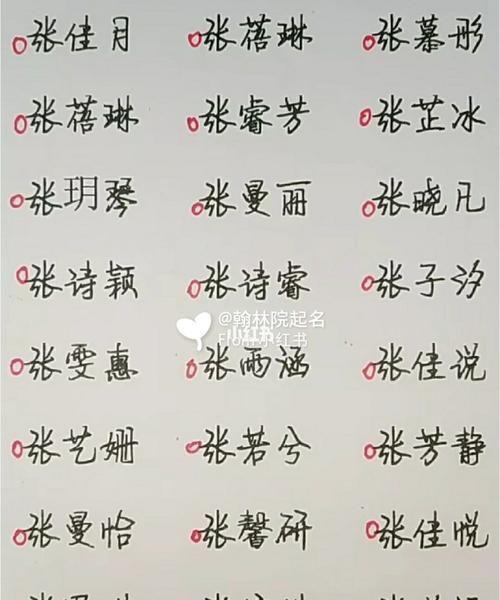 张佳月 张蓓琳 张慕彤
张蓓琳 张睿芳 张芷冰
张玥琴 张曼丽 张晓凡
张诗颖 张诗睿 张子汐
@翰林院起名
小红书
张雯惠 张雨涵 张佳说
张艺姗 张若兮 张芳静
张曼怡 张馨研 张佳悦